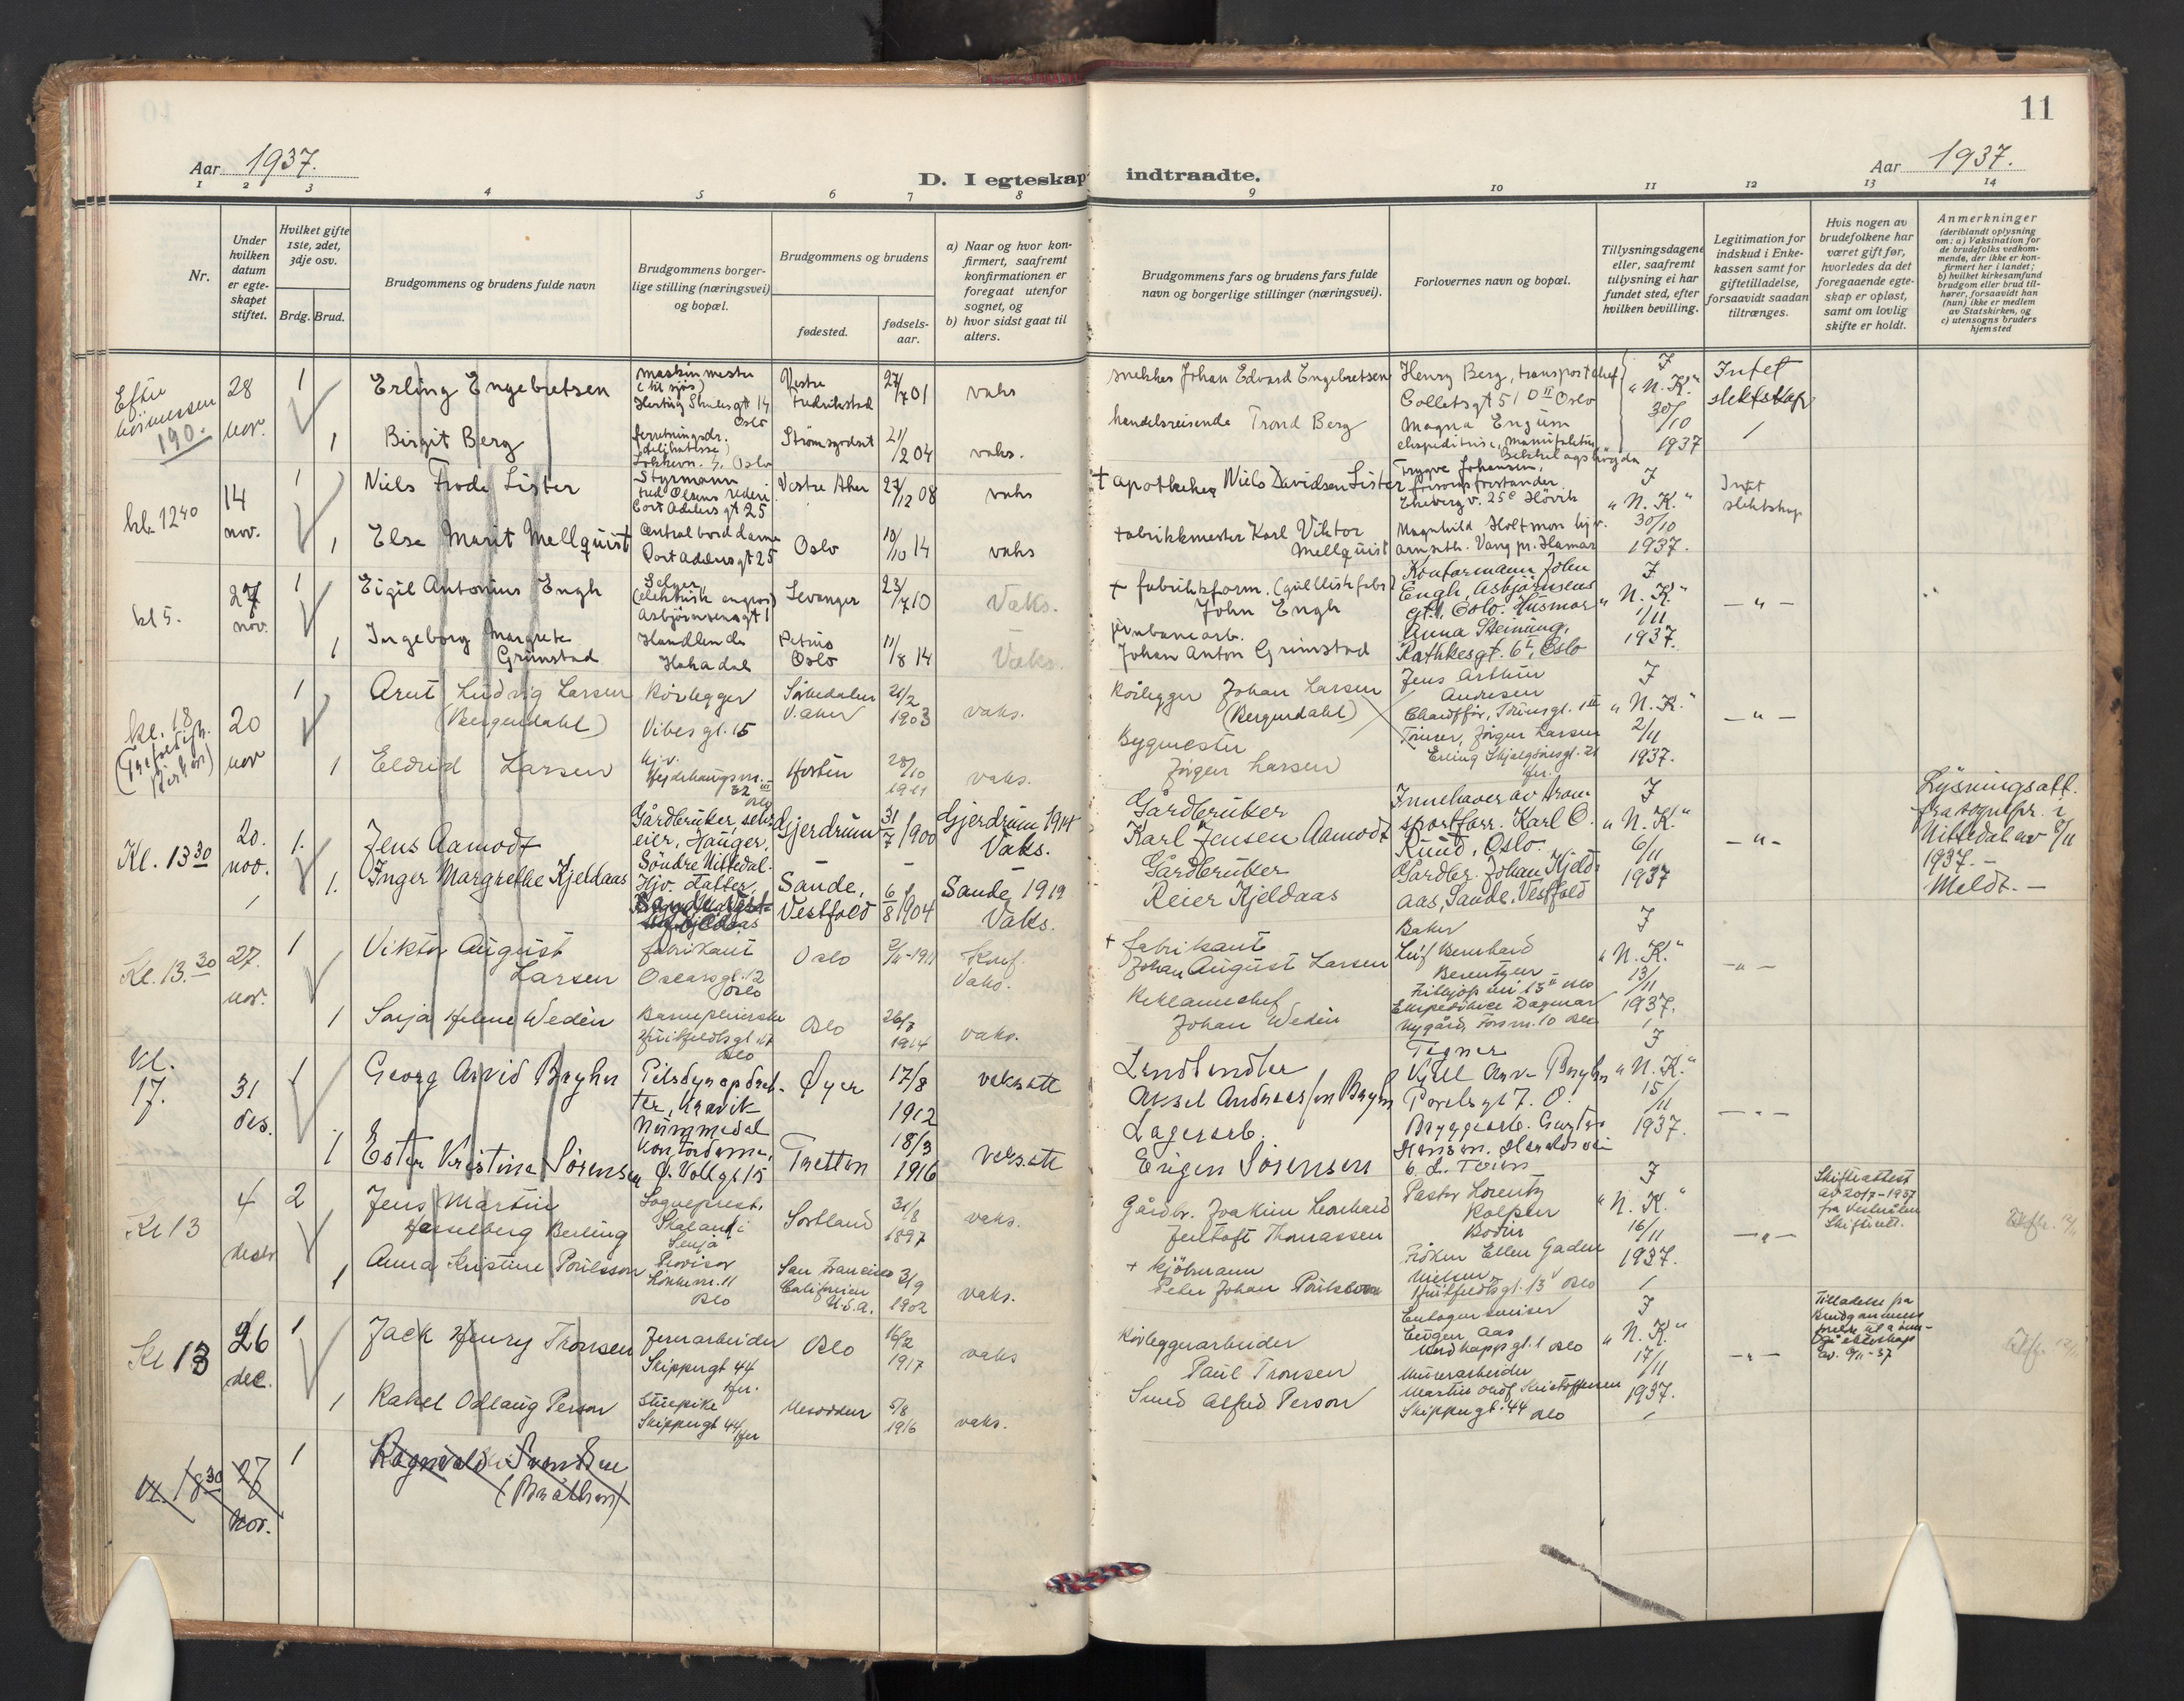 11
Aar 1937.
D. I egteskap indtraadte.
Aar 1937.
1 2 3 4 5 6 7 8 9 10 11 12 13 14
Nr.
Under hvilken datum er egteskapet stiftet.
Hvilket gifte 1ste, 2det, 3dje osv.
Brdg. Brud.
Brudgommens og brudens fulde navn
Brudgommens borgerlige stilling (næringsvei) og bopæl.
Brudgommens og brudens
fødested.
fødsels-aar.
a) Naar og hvor konfirmert, saafremt konfirmationen er foregaat utenfor sognet, og
b) hvor sidst gaat til alters.
Brudgommens fars og brudens fars fulde navn og borgerlige stillinger (næringsvei).
Forlovernes navn og bopæl.
Tillysningsdagene eller, saafremt tillysning ei har fundet sted, efter hvilken bevilling.
Legitimation for indskud i Enkekassen samt for giftetilladelse, forsaavidt saadan tiltrænges.
Hvis nogen av brudefolkene har været gift før, hvorledes da det foregaaende egteskap er opløst, samt om lovlig skifte er holdt.
Anmerkninger
(deriblandt oplysning om: a) Vaksination for de brudefolks vedkommende, der ikke er konfirmert her i landet;
b) hvilket kirkesamfund brudgom eller brud tilhører, forsaavidt han (hun) ikke er medlem av Statskirken, og
c) utensogns bruders hjemsted
Efter høimessen 190.
28 nov.
1
Erling Engebretsen
maskinmester (til sjøs)
14 Oslo
Vestre Fredrikstad
27/7 01
vaks
snekker Johan Edvard Engebretsen
Henry Berg, transportchef
Colletsgt 51 O II Oslo
I "N.K." 30/10 1937
Intet slektskap
1
Birgit Berg
Oslo
Strømsgodset
21/2 04
vaks.
handelsreisende Trond Berg
Magna Engum
Bekkelagshøgda
kl. 12 40
14 nov.
1
Niels Frode Lister
Styrmann
Fred Olsens rederi
Cort Adelers gt 25
Vestre Aker
27/12 08
vaks
+ apotheker Niels Davidsen Lister
Trygve Johansen,
Ekeberg v. 25 c Høvik
I "N.K." 30/10 1937.
Intet slektskap
1
Else Marit Mellquist
Centralborddame
Cort Adelers gt 25
Oslo
10/10 14
vaks
+ fabrikkmester Karl Viktor Mellquist
Magnhild Holtmon hjv.
Vang pr. Hamar
kl 5.
27 nov.
1
Eigil Antonius Engh
Selger
(elektrisk engros)
Asbjørnsens gt 1
Levanger
23/7 10
Vaks.
+ fabrikkform.
John Engh
Kontormann John Engh, Asbjørnsens gt. 1, Oslo. Husmor
I "N.K." 1/11 1937.
— " —
1
Ingeborg Margrete Grimstad
Handlende
Petrus Oslo
11/8 14
Vaks.
jernbanearb.
Johan Anton Grimstad
Anna Steinung,
Rathkesgt. 6 b, Oslo
kl. 18
(Trefoldigh. kirken)
20 nov
1
Arnt Ludvig Larsen
(Bergendahl)
Rørlegger
Vibes gt. 15
Sørkedalen V. Aker
21/2 1903
vaks.
Rørlegger Johan Larsen
(Bergendahl)
Jens Arthur Andresen
I "N.K." 2/11 1937.
— " —
1
Eldrid Larsen
hjv.
32 III Oslo
Horten
28/10 1911
vaks.
Bygmester
Jørgen Larsen
Jørgen Larsen
Kl. 13 30
20. nov.
1.
Jens Aamodt
Gårdbruker, selveier, Hauger,
Søndre Nittedal.
Gjerdrum
31/7 1900
Gjerdrum 1914
Vaks.
Gårdbruker
Karl Jensen Aamodt
Innehaver av
sportsforr. Karl O. Ruud, Oslo.
I "N.K." 6/11 1937
— " —
Lysningsatt.
fra sognepr. i Nittedal av 8/11 1937. —
Meldt. —
1.
Inger Margrethe Kjeldaas
Hjv. datter,
Sande, Vestfold
6/8 1904
Sande 1919
Vaks.
Gårdbruker
Reier Kjeldaas
Gårdbr. Johan Kjeldaas, Sande, Vestfold
Kl. 13. 30
27. nov.
1
Viktor August Larsen
fabrikant
Oscarsgt. 12 Oslo
Oslo
Konf.
Vaks.
+ fabrikant
Johan August Larsen
Baker
Leif Bernhard Berentzen
I "N.K." 13/11 1937.
— " —
1
Sonja Helene Wedén
Barnepleierske
Oslo
Oslo
26/7 1914
vaks.
Reklamechef
Johan Wedén
Ekspeditrice Dagmar Nygård
Kl. 17.
31 des.
1
Georg Arvid Bryhn
Pelsdyropdretter, Kravik
Nummedal
Øyer
17/8 1912
vaks.att
Aksel Andreassen Bryhn
Tegner
I "N.K." 15/11 1937.
— " —
1
Ester Kristine Sørensen
Kontordame,
Ø. Vollgt 15
Tretten
18/3 1916
vaks.att
Lagerarb.
Eugen Sørensen
Bryggearb. Gustav Hansen, Haralds vei
Kl 13
4 desbr
2
Jens Martin
Hasselberg Berling
Sogneprest,
Skaland i Senja
Sortland
31/8 1897
vaks.
Gårdbr. Joakim Leonhard
Jentoft Thomassen
Pastor Lorentz Kolpen
Bodin
I "N.K." 16/11 1937.
— " —
Skifteattest av 20/7-1937
fra Vesterålen Skifterett.
1
Anna Kristine Poulsson
Provisor
Løkkev. 11 Oslo
San Francisco
California U.S.A.
3/9 1902
vaks.
+ kjøbmann
Peter Johan Poulsson
Frøken Ellen Gaden Nielsen
Huitfeldtsgt. 13 Oslo
Kl 13
26 dec.
1
Jack Henry Tronsen
Jernarbeider
Skippergt 44
Oslo
16/2 1917
vaks
Rørleggerarbeider
Paul Tronsen
Eugen Aas
I "N.K." 17/11 1937.
— " —
Tilladelse fra Brudgommens foreldre til å inngå ekteskap av 9/11-37
1
Rakel Odlaug Person
Stuepike
Skippergt 44
Nesodden
5/8 1916
vaks.
Smed Alfred Person
Murerarbeider
Martin Olaf Kristoffersen
Skippergt. 44 Oslo
Kl. 18 30
27 nov.
1
Ragnvald Svendsen
(Bråthen)